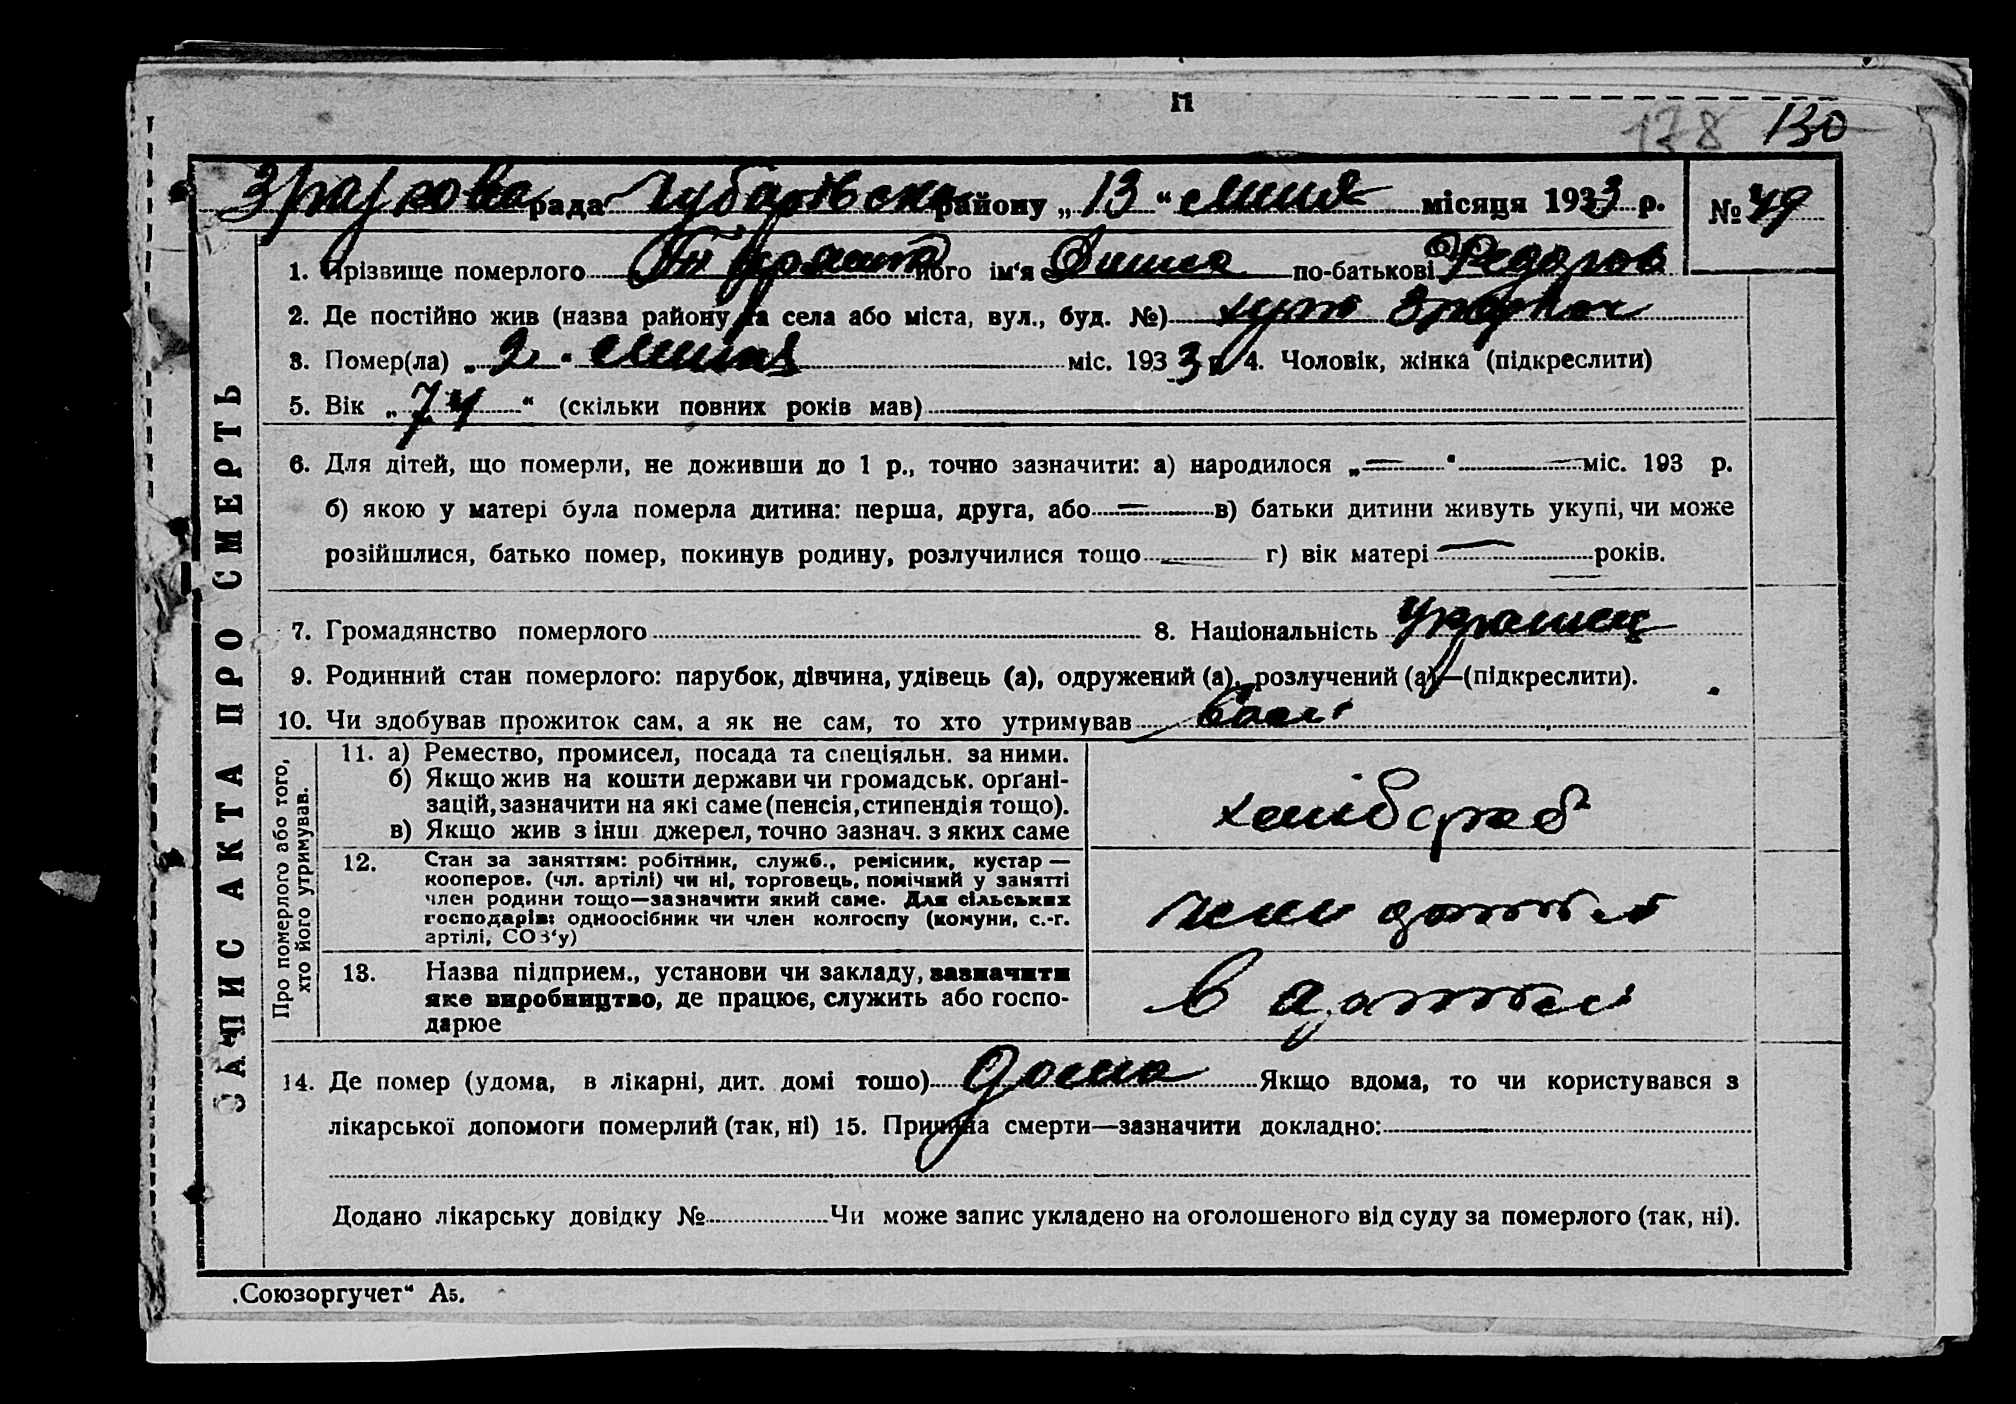 П
178 130
рада Чубарівськ району „13“ липня місяця 1933 р. № 49
1. Прізвище померлого його ім'я по-батькові Федоров
2. Де постійно жив (назва району та села або міста, вул., буд. №) хут
3. Помер(ла) „2“ липня міс. 1933 р. 4. Чоловік, жінка (підкреслити)
5. Вік „74“ (скільки повних років мав)
6. Для дітей, що померли, не доживши до 1 р., точно зазначити: а) народилося „ “ міс. 193 р.
б) якою у матері була померла дитина: перша, друга, або в) батьки дитини живуть укупі, чи може
розійшлися, батько помер, покинув родину, розлучилися тощо г) вік матері років.
7. Громадянство померлого 8. Національність Украинец
9. Родинний стан померлого: парубок, дівчина, удівець (а), одружений (а), розлучений (а)—(підкреслити).
10. Чи здобував прожиток сам, а як не сам, то хто утримував Сам
11. а) Ремество, промисел, посада та спеціяльн. за ними.
б) Якщо жив на кошти держави чи громадськ. орґані-
зацій, зазначити на які саме (пенсія, стипендія тощо).
в) Якщо жив з інш джерел, точно зазнач. з яких саме
хлібороб
12. Стан за заняттям: робітник, служб., ремісник, кустар —
кооперов. (чл. артілі) чи ні, торговець, помічний у занятті
член родини тощо—зазначити який саме. Для сільських
господарів: одноосібник чи член колгоспу (комуни, с.-г.
артілі, СОЗ'у)
член артілі
13. Назва підприєм., установи чи закладу, зазначити
яке виробництво, де працює, служить або госпо-
дарює
в артілі
14. Де помер (удома, в лікарні, дит. домі тошо) дома Якщо вдома, то чи користувався з
лікарської допомоги померлий (так, ні) 15. Причина смерти—зазначити докладно:
Додано лікарську довідку № Чи може запис укладено на оголошеного від суду за померлого (так, ні).
ЗАПИС АКТА ПРО СМЕРТЬ
Про померлого або того,
хто його утримував.
„Союзоргучет“ А5.